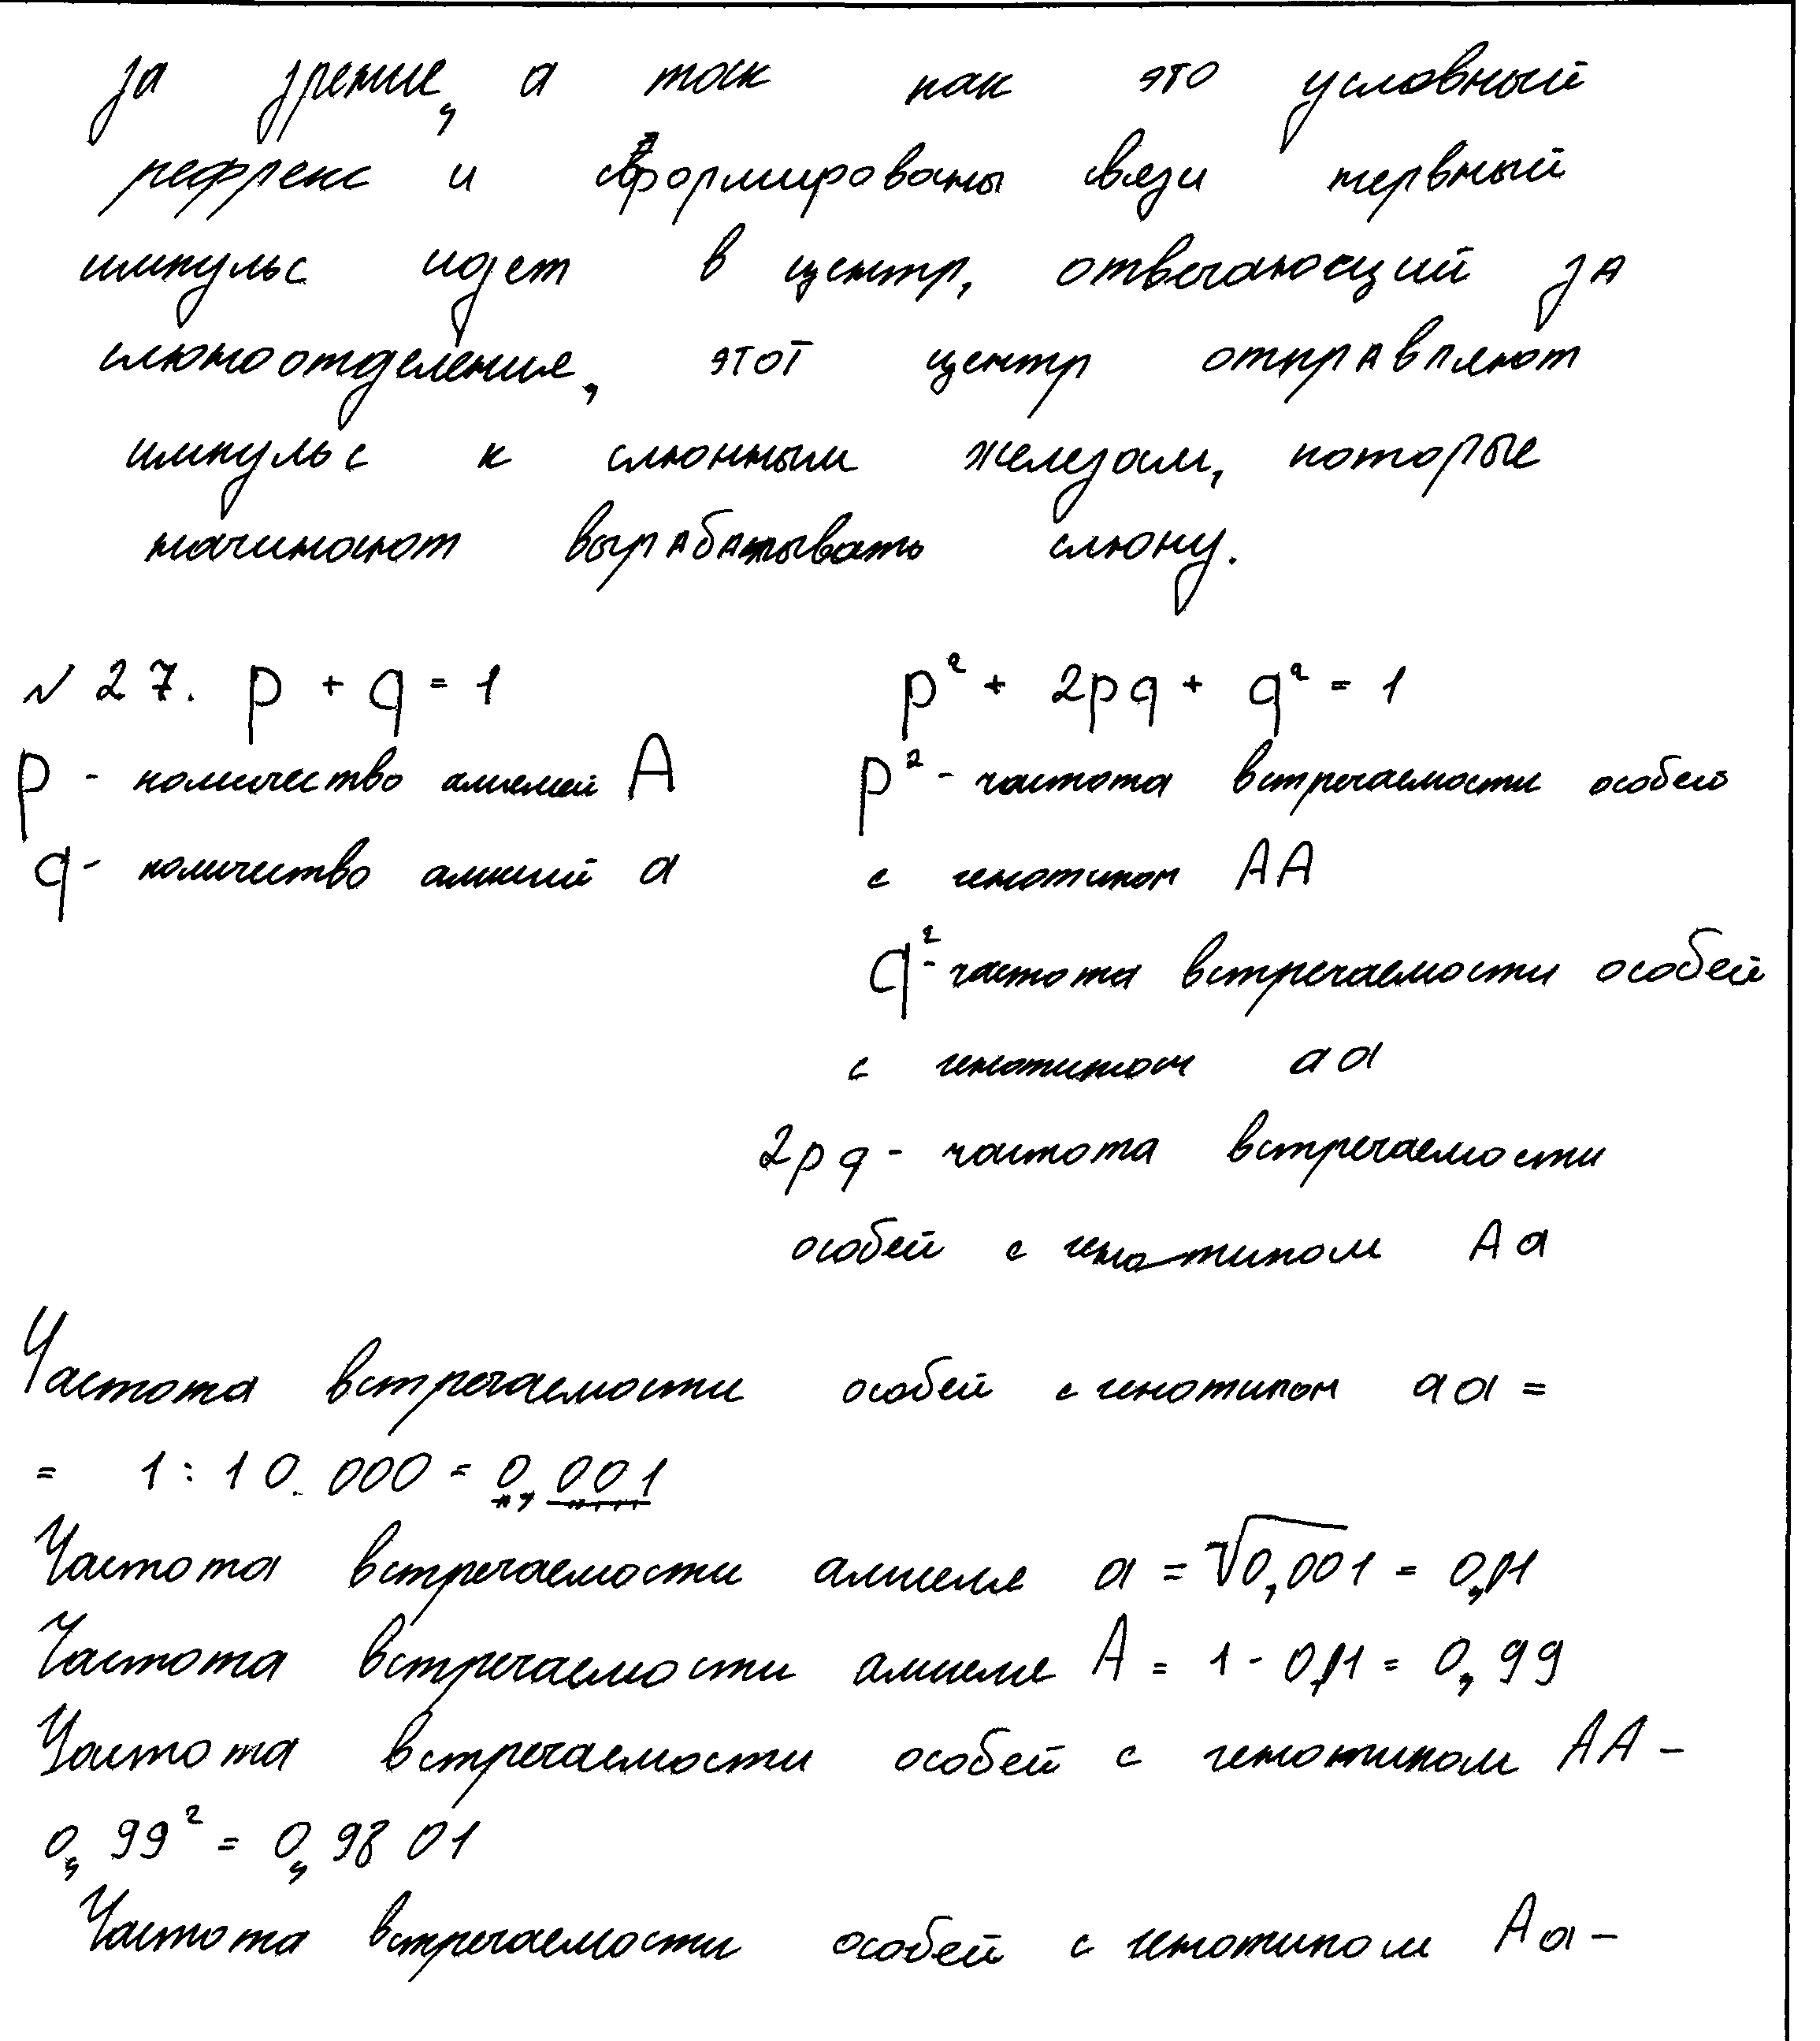 за зрение, а так как это условный
рефлекс и сформированы связи нервный
импульс идет в центр, отвечающий за
слюноотделение, этот центр отправляют
импульс к слюнным железам, которые
начинают вырабатывать слюну.
№ 27. p + q = 1
p - количество аллелей A
q - количество аллелий a
p² + 2pq + q² = 1
p² - частота встречаемости особей
с генотипом AA
q² - частота встречаемости особей
с генотипом aa
2pq - частота встречаемости
особей с генотипом Aa
Частота встречаемости особей с генотипом aa =
= 1 : 10.000 = 0,001
Частота встречаемости аллеля a = √0,001 = 0,01
Частота встречаемости аллеля A = 1 - 0,01 = 0,99
Частота встречаемости особей с генотипом AA -
0,99² = 0,9801
Частота встречаемости особей с генотипом Aa -